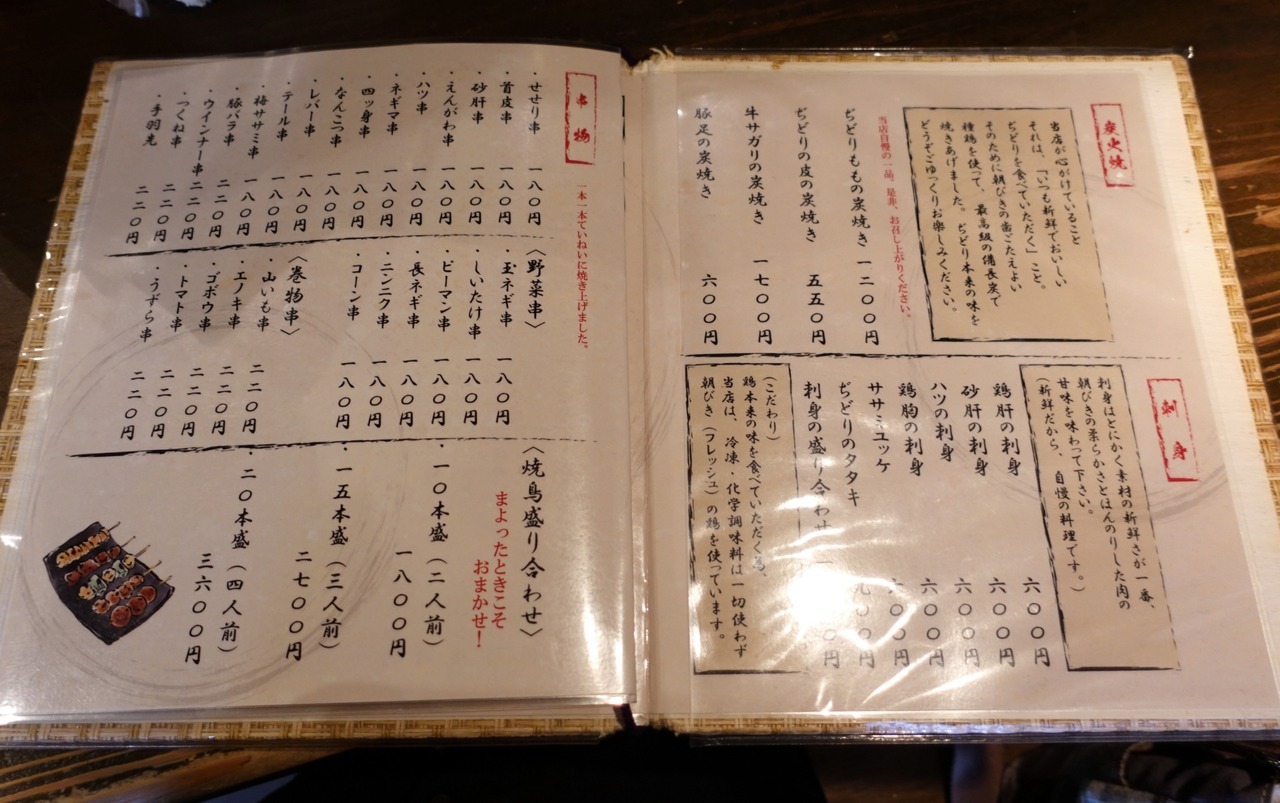 炭火焼
当店が心がけていること
それは、「いつも新鮮でおいしい
ぢどりを食べていただく」こと。
そのために朝びきの歯ごたえよい
種鶏を使って、最高級の備長炭で
焼きあげました。ぢどり本来の味を
どうぞごゆっくりお楽しみください。
当店自慢の一品、是非、お召し上がりください。
ぢどりももの炭焼き 一二〇〇円
ぢどりの皮の炭焼き 五五〇円
牛サガリの炭焼き 一七〇〇円
豚足の炭焼き 六〇〇円
刺身
刺身はとにかく素材の新鮮さが一番、
朝びきの柔らかさとほんのりした肉の
甘味を味わって下さい。
(新鮮だから、自慢の料理です。)
鶏肝の刺身 六〇〇円
砂肝の刺身 六〇〇円
ハツの刺身 六〇〇円
鶏胸の刺身 六〇〇円
ササミユッケ 六〇〇円
ぢどりのタタキ 九〇〇円
刺身の盛り合わせ
(こだわり)
鶏本来の味を食べていただく為、
当店は、冷凍・化学調味料は一切使わず
朝びき(フレッシュ)の鶏を使っています。
串物
一本一本ていねいに焼き上げました。
・せせり串 一八〇円
・首皮串 一八〇円
・砂肝串 一八〇円
・えんがわ串 一八〇円
・ハツ串 一八〇円
・ネギマ串 一八〇円
・四ッ身串 一八〇円
・なんこつ串 一八〇円
・レバー串 一八〇円
・テール串 一八〇円
・梅ササミ串 一八〇円
・豚バラ串 二二〇円
・ウインナー串 二二〇円
・つくね串 二二〇円
・手羽先 二二〇円
〈野菜串〉
・玉ネギ串 一八〇円
・しいたけ串 一八〇円
・ピーマン串 一八〇円
・長ネギ串 一八〇円
・ニンニク串 一八〇円
・コーン串 一八〇円
〈巻物串〉
・山いも串 二二〇円
・エノキ串 二二〇円
・ゴボウ串 二二〇円
・トマト串 二二〇円
・うずら串 二二〇円
〈焼鳥盛り合わせ〉
まよったときこそ
おまかせ!
・一〇本盛(二人前) 一八〇〇円
・一五本盛(三人前) 二七〇〇円
・二〇本盛(四人前) 三六〇〇円